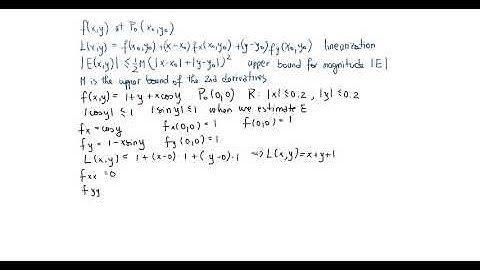 f(x,y) at P₀(x₀,y₀)
L(x,y) = f(x₀,y₀)+(x-x₀)fx(x₀,y₀)+(y-y₀)fy(x₀,y₀) linearization
|E(x,y)| ≤ ½M(|x-x₀|+|y-y₀|)² upper bound for magnitude |E|
M is the upper bound of the 2nd derivatives
f(x,y) = 1+y+xcosy P₀(0,0) R: |x|≤0.2, |y|≤0.2
|cosy| ≤ 1 |siny| ≤ 1 when we estimate E
fx = cosy fx(0,0) = 1 f(0,0) = 1
fy = 1-xsiny fy(0,0) = 1
L(x,y) = 1+(x-0)·1+(y-0)·1 => L(x,y)=x+y+1
fxx = 0
fyy